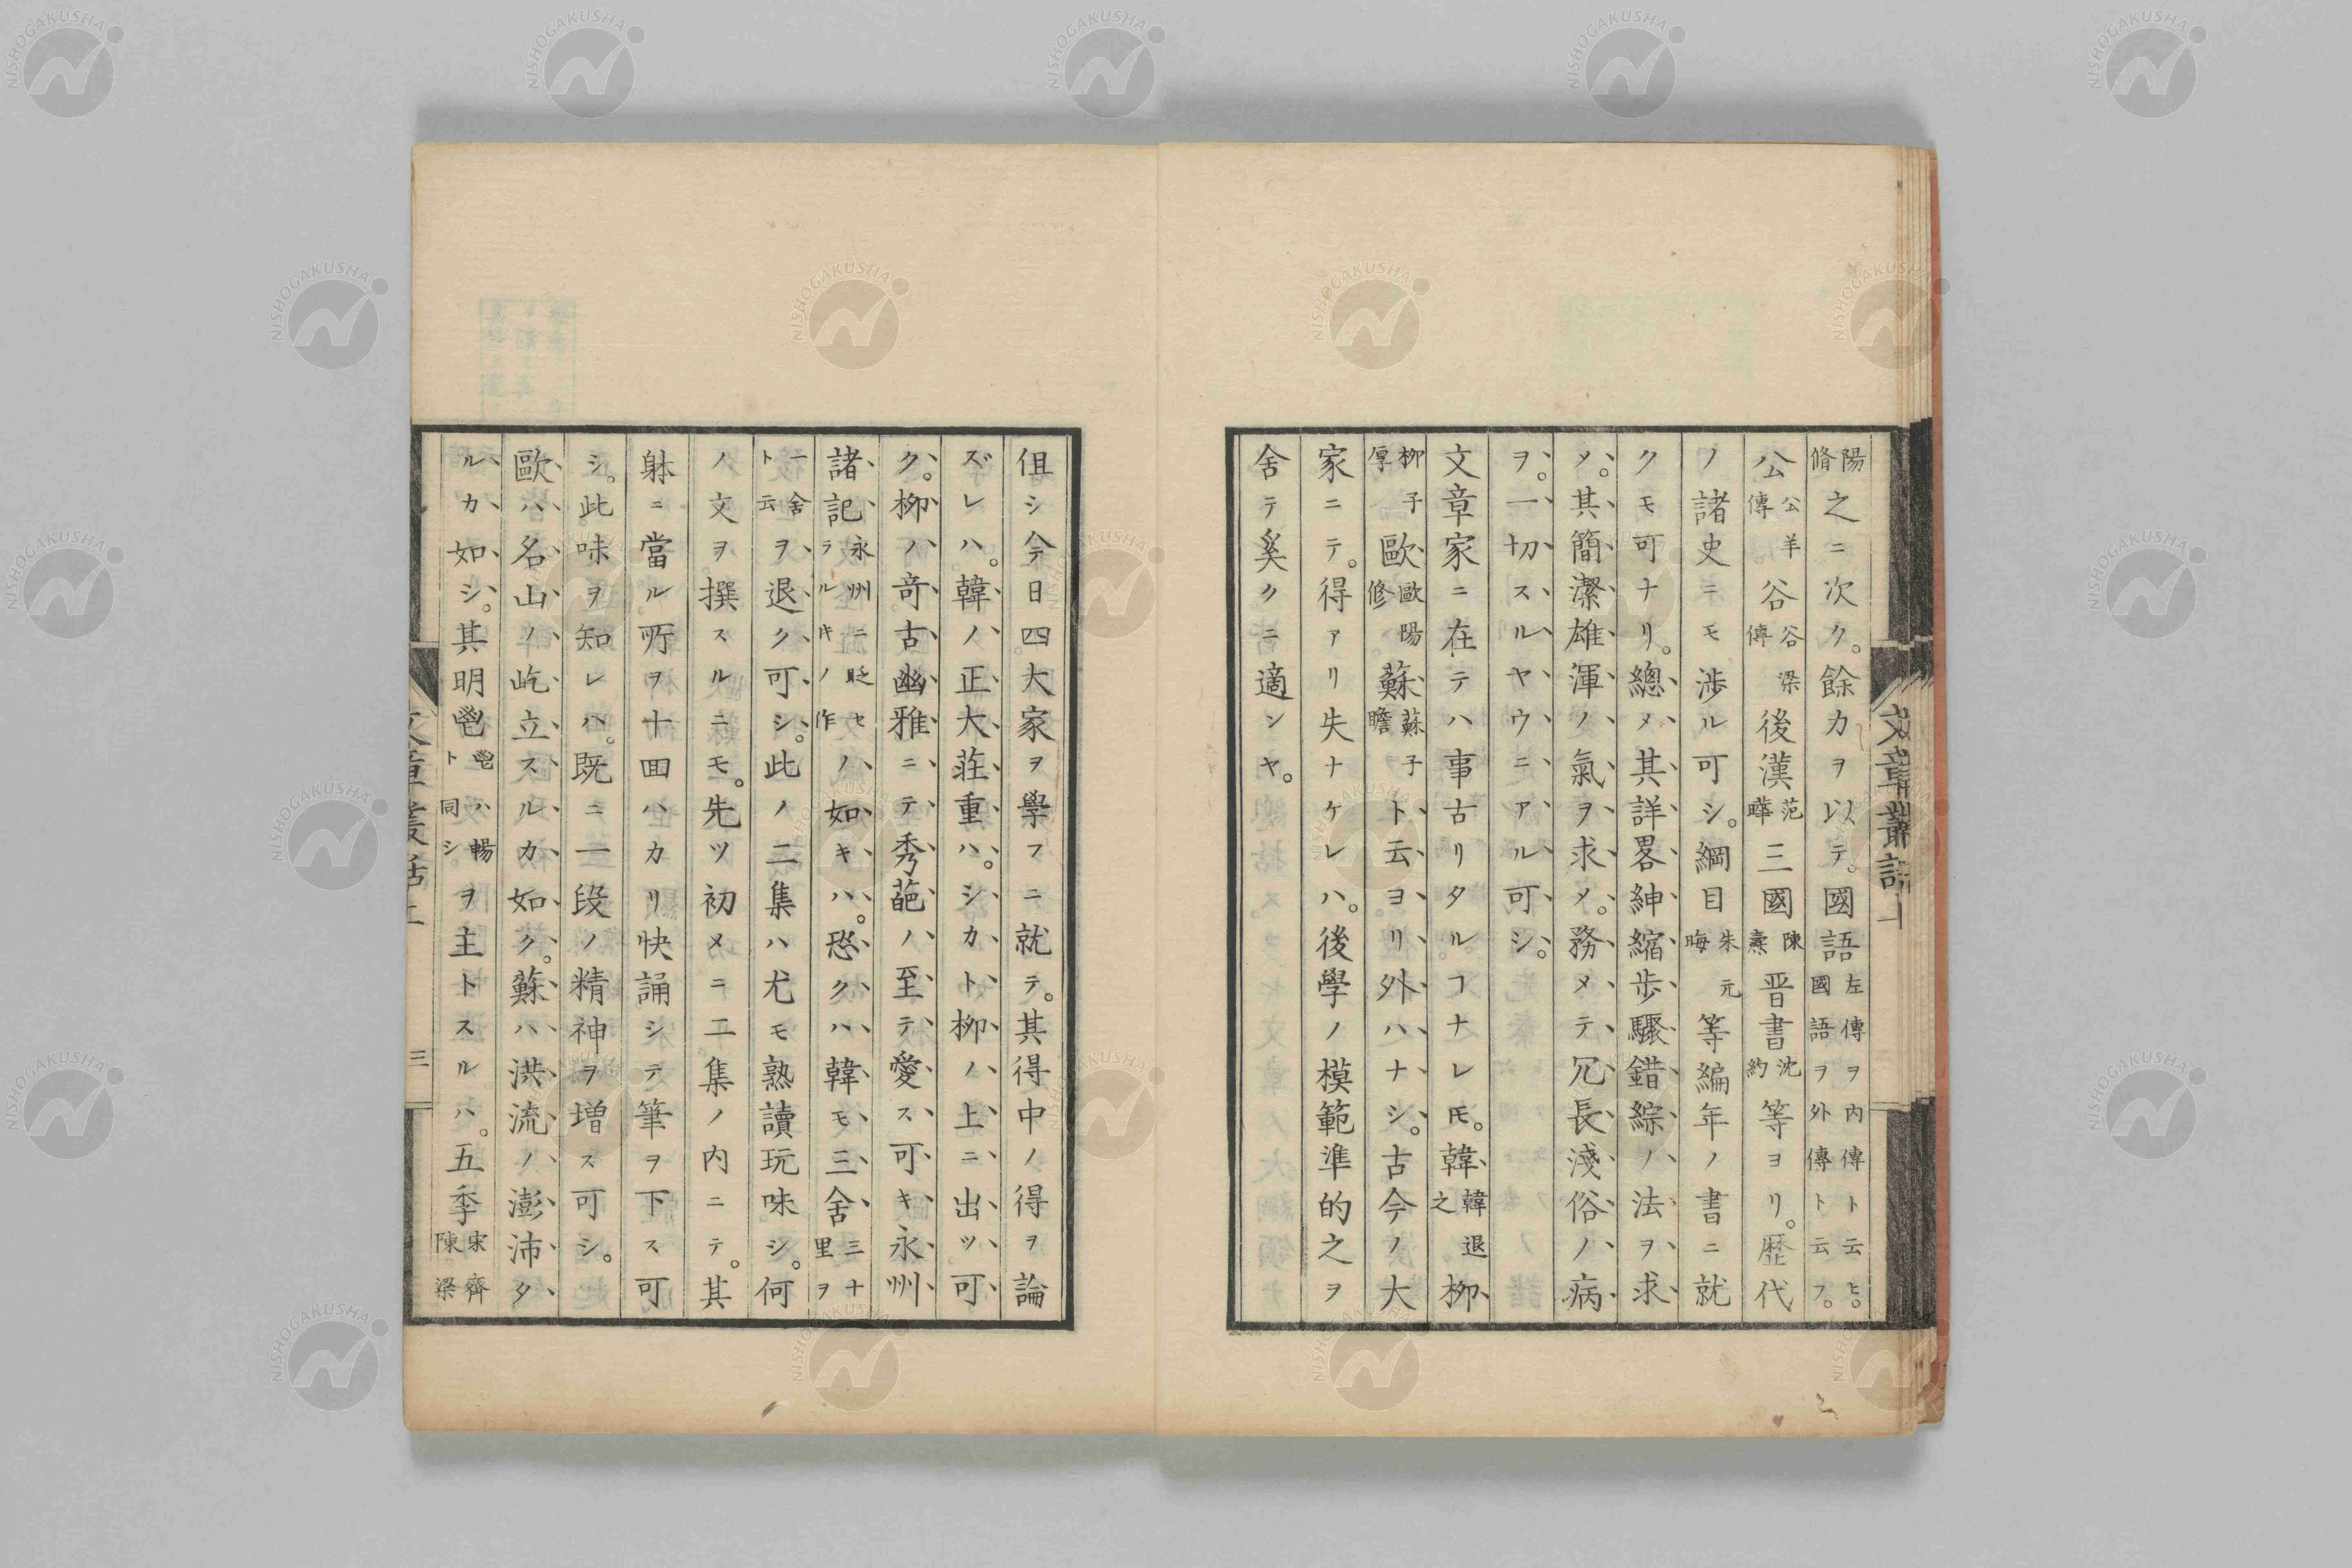 陽脩之ニ次ク。餘カヲ以テ。國語左傳ヲ內傳ト云ヒ。國語ヲ外傳ト云フ。
公公羊傳谷谷梁傳後漢范曄三國陳壽晋書沈約等ヨリ。歴代
ノ諸史ニモ渉ル可シ。綱目朱元晦等編年ノ書ニ就
クモ可ナリ。總メ其詳畧紳縮歩驟錯綜ノ法ヲ求
メ。其簡潔雄渾ノ氣ヲ求メ。務メテ冗長淺俗ノ病
ヲ。一切スルヤウニアル可シ。
文章家ニ在テハ事古リタルヿナレ𪜈。韓韓退之柳
柳子厚歐歐陽修蘇蘇子瞻ト云ヨリ外ハナシ。古今ノ大
家ニテ。得アリ失ナケレハ。後學ノ模範準的之ヲ
舍テ奚クニ適ンヤ。
文章叢話上
伹シ今日四大家ヲ學フニ就テ。其得中ノ得ヲ論
ズレハ。韓ノ正大莊重ハ。シカト柳ノ上ニ出ツ可
ク。柳ノ竒古幽雅ニテ秀葩ノ至テ愛ス可キ永州
諸記永州ニ貶セラルヽ片ノ作ノ如キハ。恐クハ韓モ三舍三十里ヲ
一舍ト云ヲ退ク可シ。此ノ二集ハ尤モ熟讀玩味シ。何
ノ文ヲ撰スルニモ。先ツ初メニ二集ノ內ニテ。其
躰ニ當ル所ヲ十回ハカリ快誦シテ筆ヲ下ス可
シ。此味ヲ知レハ。既ニ一段ノ精神ヲ増ス可シ。
歐ハ名山ノ屹立スルカ如ク。蘇ハ洪流ノ澎沛タ
ルカ如シ。其明鬯鬯ハ暢ト同シヲ主トスルハ。五季宋齊梁陳
文章叢話上
三